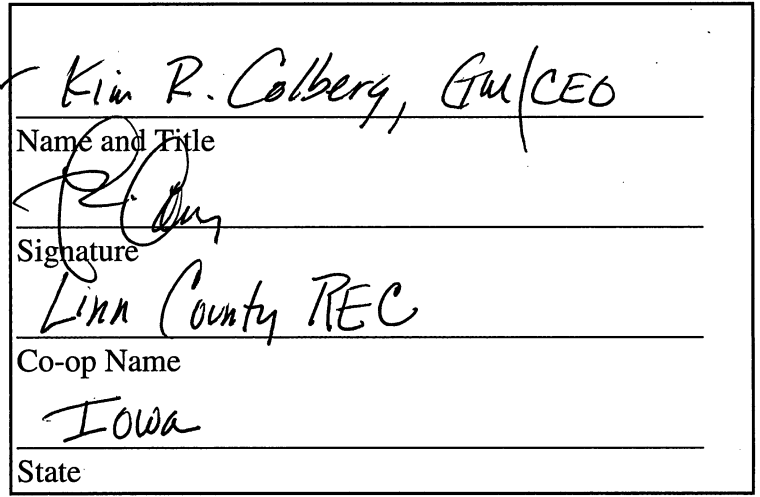 Kim R. Colberg, GM/CEO
Name and Title
Signature
Linn County REC
Co-op Name
Iowa
State